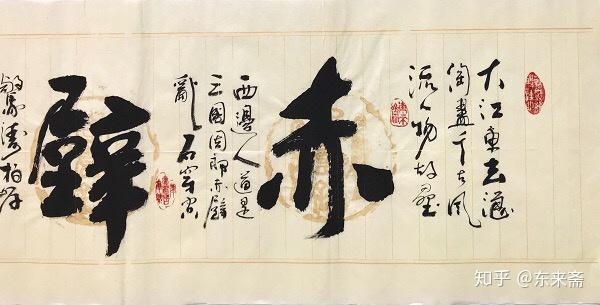 大江東去浪
淘盡千古風
流人物故壘
赤
西邊人道是
三國周郎赤壁
亂石穿空
壁
驚濤拍岸
知乎 @东来斋